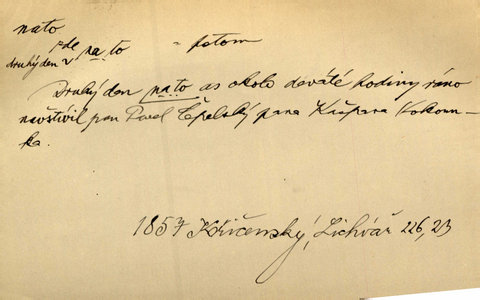 nato
druhý den na to = potom
Druhý den na to as okolo deváté hodiny ráno
navštívil pan Pavel Čepelský pana Kašpara Kokoun-
ka.
1857 Křičenský, Lichvář 226, 23